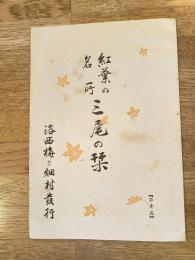 紅葉の
名所
三尾の栞
洛西梅ケ畑村發行